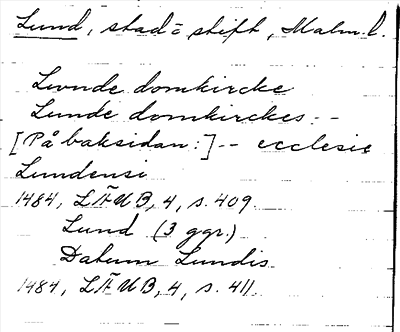 Lund, stad o stift, Malm. l.
Lvnde domkircke
Lunde domkirckes --
[På baksidan:] -- ecclesie
Lundensi
1484, LÄUB, 4, s. 409.
Lund (3 ggr.)
Datum Lundis
1484, LÄUB, 4, s. 411.